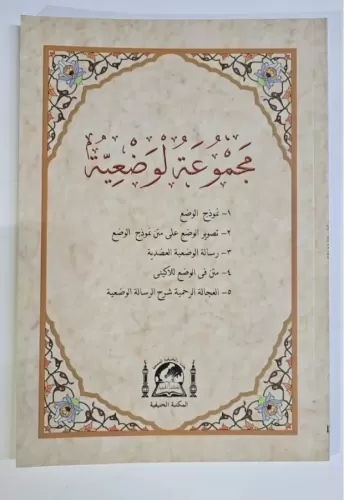 مَجْمُوعَةٌ لْوَضْعِيَّة
١- نموذج الوضع
٢- تصوير الوضع على متن نموذج الوضع
٣- رسالة الوضعية العضدية
٤- متن فى الوضع للاكينى
٥- العجالة الرحمية شرح الرسالة الوضعية
المكتبة الحنيفية